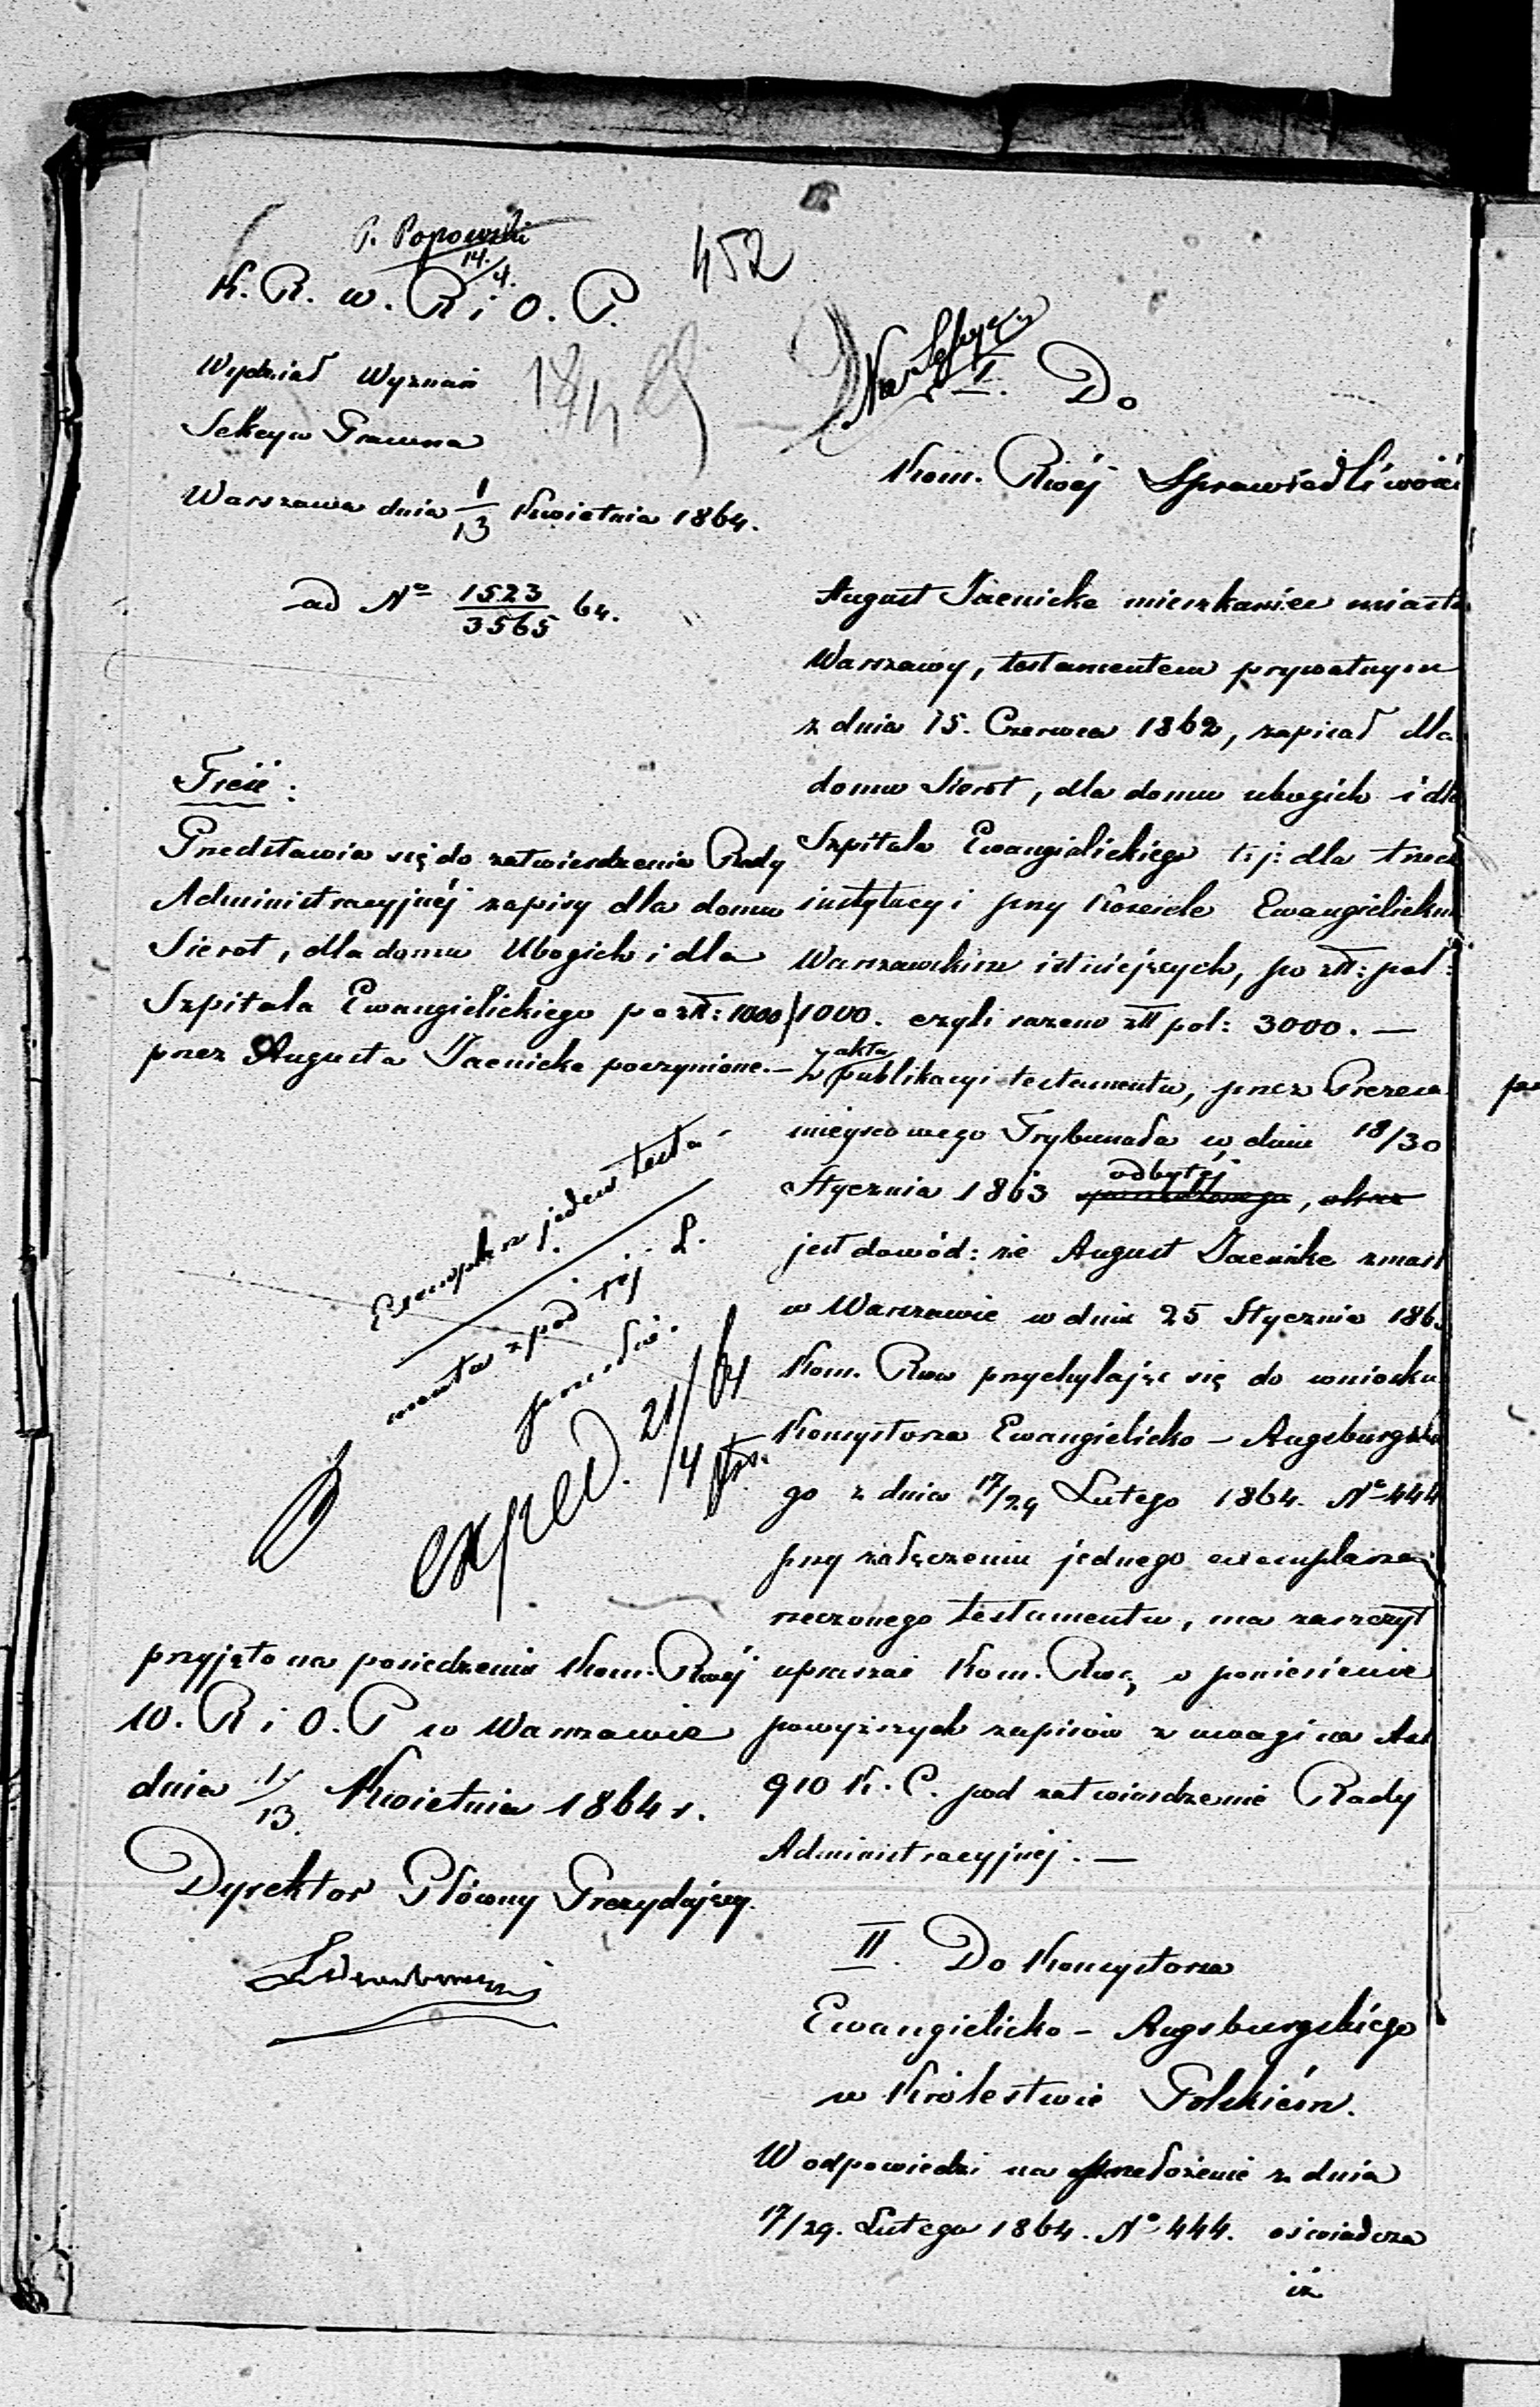 P. Popowski
14./4.
452
K. R. w. R i O. P.
Wydział Wyznań
Sekcya Prawna
Warszawa dnia 1/13 Kwietnia 1864.
ad No 1523/3565 64.
Treść:
Przedstawia się do zatwierdzenia Rady
Administracyjnéj zapisy dla domu
Sierot, dla domu Ubogich i dla
Szpitala Ewangielickiego po złł: 1000
przez Augusta Jaenicke poczynione.—
Exemplarz jeden testa-
mentu z pod tej L.
exped. 21/4 64
przyjęto na posiedzeniu Kom. Rwéj
W. R i O. P w Warszawie
dnia 1/13. Kwietnia 1864 r.
Dyrektor Główny Prezydujący.
I. Do
Kom. Rwéj Sprawiedliwości
August Jaenicke mieszkaniec miasta
Warszawy, testamentem prywatnym
z dnia 15. Czerwca 1862, zapisał dla
domu Sierot, dla domu ubogich i dla
Szpitala Ewangielickiego t: j: dla trzech
instytucyi przy Kościele Ewangielickim
Warszawskim istniejących, po złł: pol:
1000. czyli razem złł pol: 3000. —
Z aktu publikacyi testamentu, przez Prezesa
miejscowego Trybunału w dniu 18/30
Stycznia 1863 odbytéj
jest dowód: że August Jaenicke zmarł
w Warszawie w dniu 25 Stycznia 186
Kom. Rwa przychylając się do wniosku
Konsystorza Ewangielicko – Augsburgskie
go z dnia 17/29 Lutego 1864. No 444
przy załączeniu jednego exemplarza
rzeczonego testamentu, ma zaszczyt
upraszać Kom. Rwą o poniesienie
powyższych zapisów z uwagi na Art
910 K. C. pod zatwierdzenie Rady
Administracyjnéj. —
II. Do Konsystorza
Ewangielicko – Augsburgskiego
w Królestwie Polskiém.
W odpowiedzi na przedłożenie z dnia
17/29. Lutego 1864. No 444. oświadcza
iż